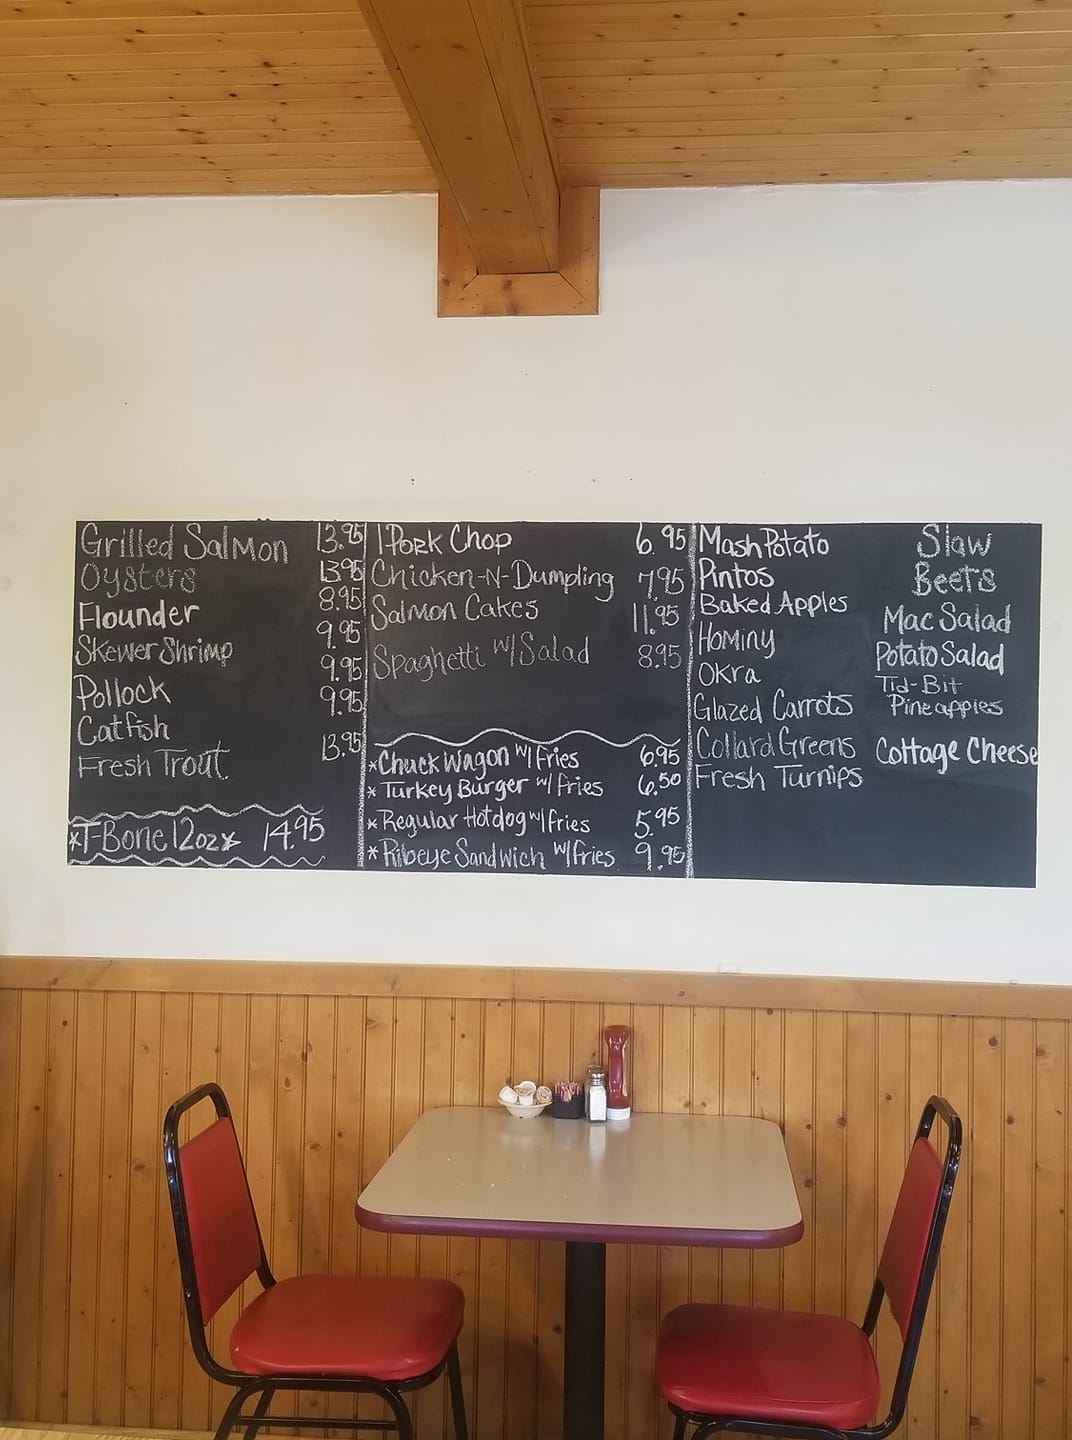 Grilled Salmon 13.95
Oysters 13.95
Flounder 8.95
Skewer Shrimp 9.95
Pollock 9.95
Catfish 9.95
Fresh Trout 13.95
*T-Bone 12oz* 14.95
1 Pork Chop 6.95
Chicken-N-Dumpling 7.95
Salmon Cakes 11.95
Spaghetti w/Salad 8.95
*Chuck Wagon w/Fries 6.95
*Turkey Burger w/fries 6.50
*Regular Hotdog w/fries 5.95
*Ribeye Sandwich w/fries 9.95
Mash Potato
Pintos
Baked Apples
Hominy
Okra
Glazed Carrots
Collard Greens
Fresh Turnips
Slaw
Beets
Mac Salad
Potato Salad
Tid-Bit
Pineapples
Cottage Cheese